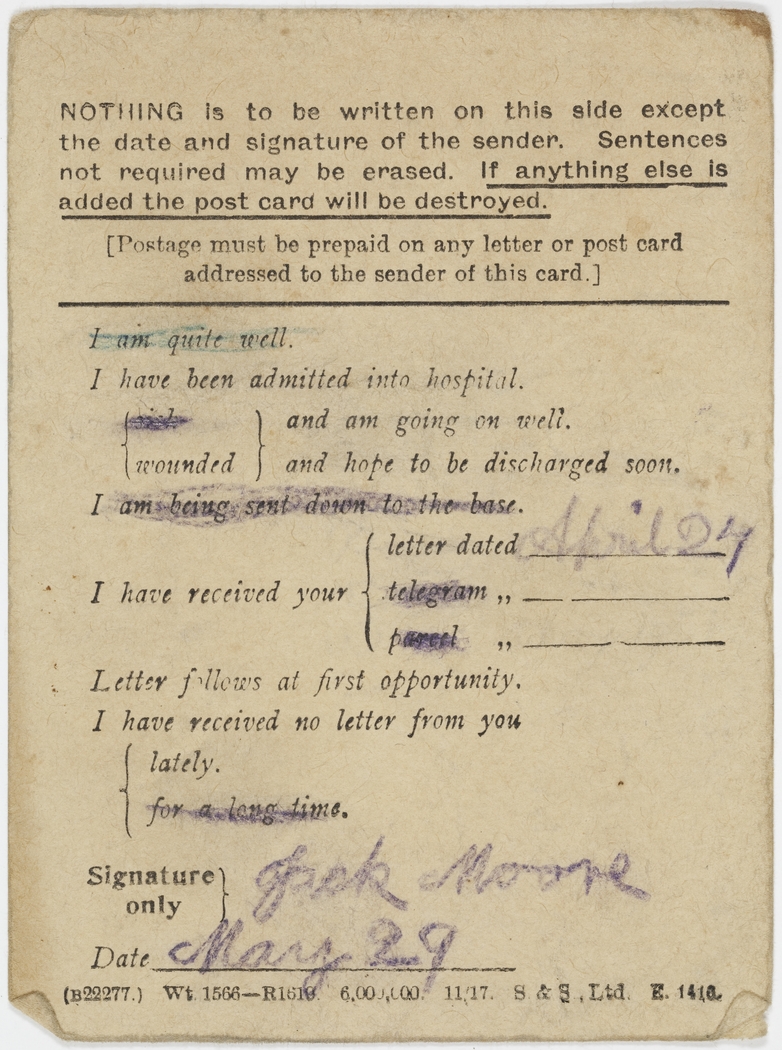 NOTHING is to be written on this side except
the date and signature of the sender. Sentences
not required may be erased. If anything else is
added the post card will be destroyed.
[Postage must be prepaid on any letter or post card
addressed to the sender of this card.]
I am quite well.
I have been admitted into hospital.
sick } and am going on well.
wounded } and hope to be discharged soon.
I am being sent down to the base.
letter dated April 24
I have received your { telegram „
parcel „
Letter follows at first opportunity.
I have received no letter from you
lately.
for a long time.
Signature } Jack Moore
only
Date May 29
(B22277.) Wt. 1566—R1619. 6,000,000. 11/17. S & S, Ltd. E. 1416.